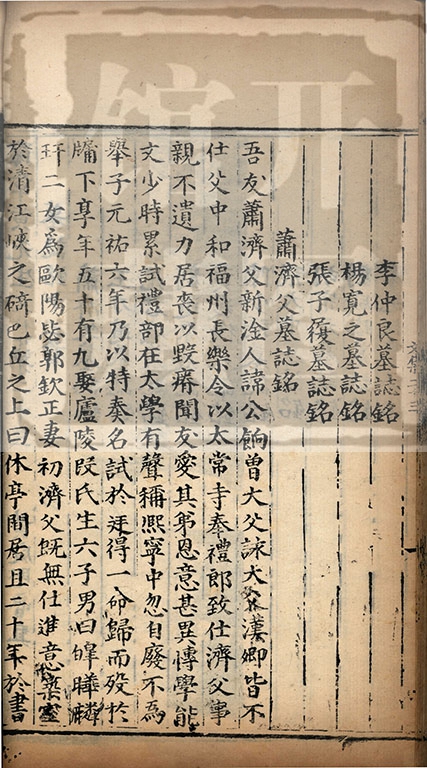 李仲良墓誌銘
楊寬之墓誌銘
張子履墓誌銘
蕭濟父墓誌銘
吾友蕭濟父新淦人諱公餉曾大父詠大父漢卿皆不
仕父中和福州長樂令以太常寺奉禮郎致仕濟父事
親不遺力居喪以毀瘠聞友愛其弟恩意甚異慱學能
文少時累試禮部在太學有聲稱熙寧中忽自廢不為
舉子元祐六年乃以特奏名試於廷得一命歸而歿於
牖下享年五十有九娶廬陵段氏生六子男曰皥曄疄
玕二女為歐陽毖郭欽正妻初濟父既無仕進意築室
於清江峽之碕巴丘之上曰休亭閒居且二十年於書